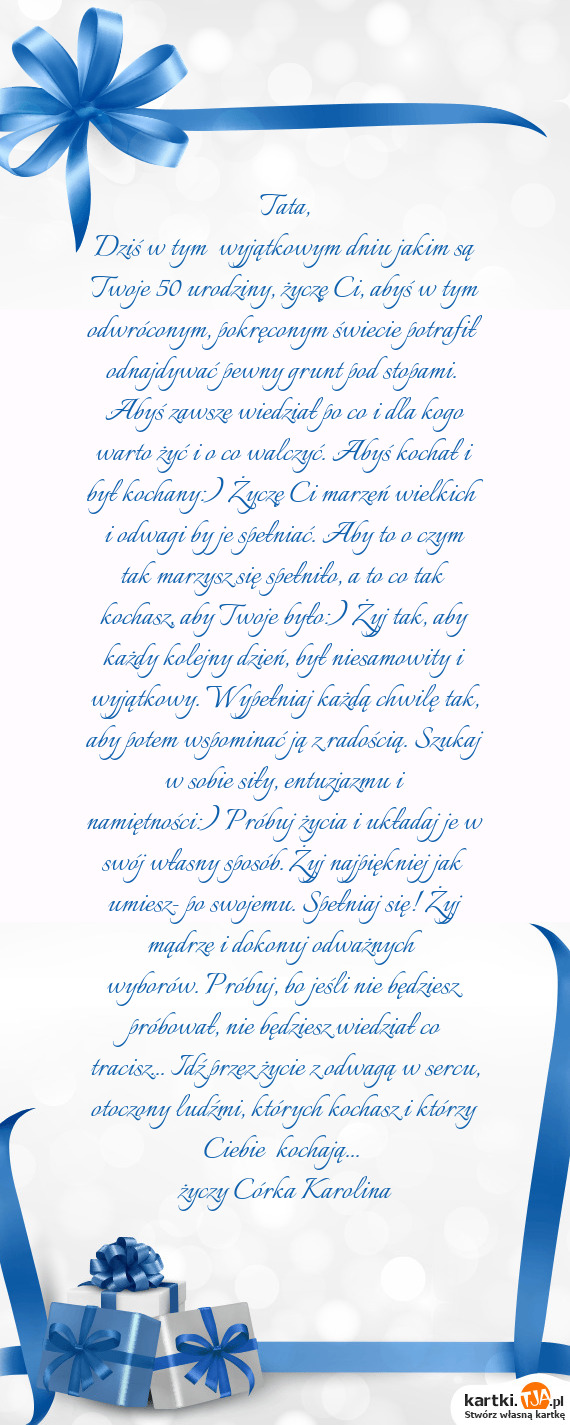 Tata,
Dziś w tym wyjątkowym dniu jakim są
Twoje 50 urodziny, życzę Ci, abyś w tym
odwróconym, pokręconym świecie potrafił
odnajdywać pewny grunt pod stopami.
Abyś zawsze wiedział po co i dla kogo
warto żyć i o co walczyć. Abyś kochał i
był kochany:) Życzę Ci marzeń wielkich
i odwagi by je spełniać. Aby to o czym
tak marzysz się spełniło, a to co tak
kochasz, aby Twoje było:) Żyj tak, aby
każdy kolejny dzień, był niesamowity i
wyjątkowy. Wypełniaj każdą chwilę tak,
aby potem wspominać ją z radością. Szukaj
w sobie siły, entuzjazmu i
namiętności:) Próbuj życia i układaj je w
swój własny sposób. Żyj najpiękniej jak
umiesz- po swojemu. Spełniaj się! Żyj
mądrze i dokonuj odważnych
wyborów. Próbuj, bo jeśli nie będziesz
próbował, nie będziesz wiedział co
tracisz... Idź przez życie z odwagą w sercu,
otoczony ludźmi, których kochasz i którzy
Ciebie kochają...
życzy Córka Karolina
kartki.TJA.pl
Stwórz własną kartkę